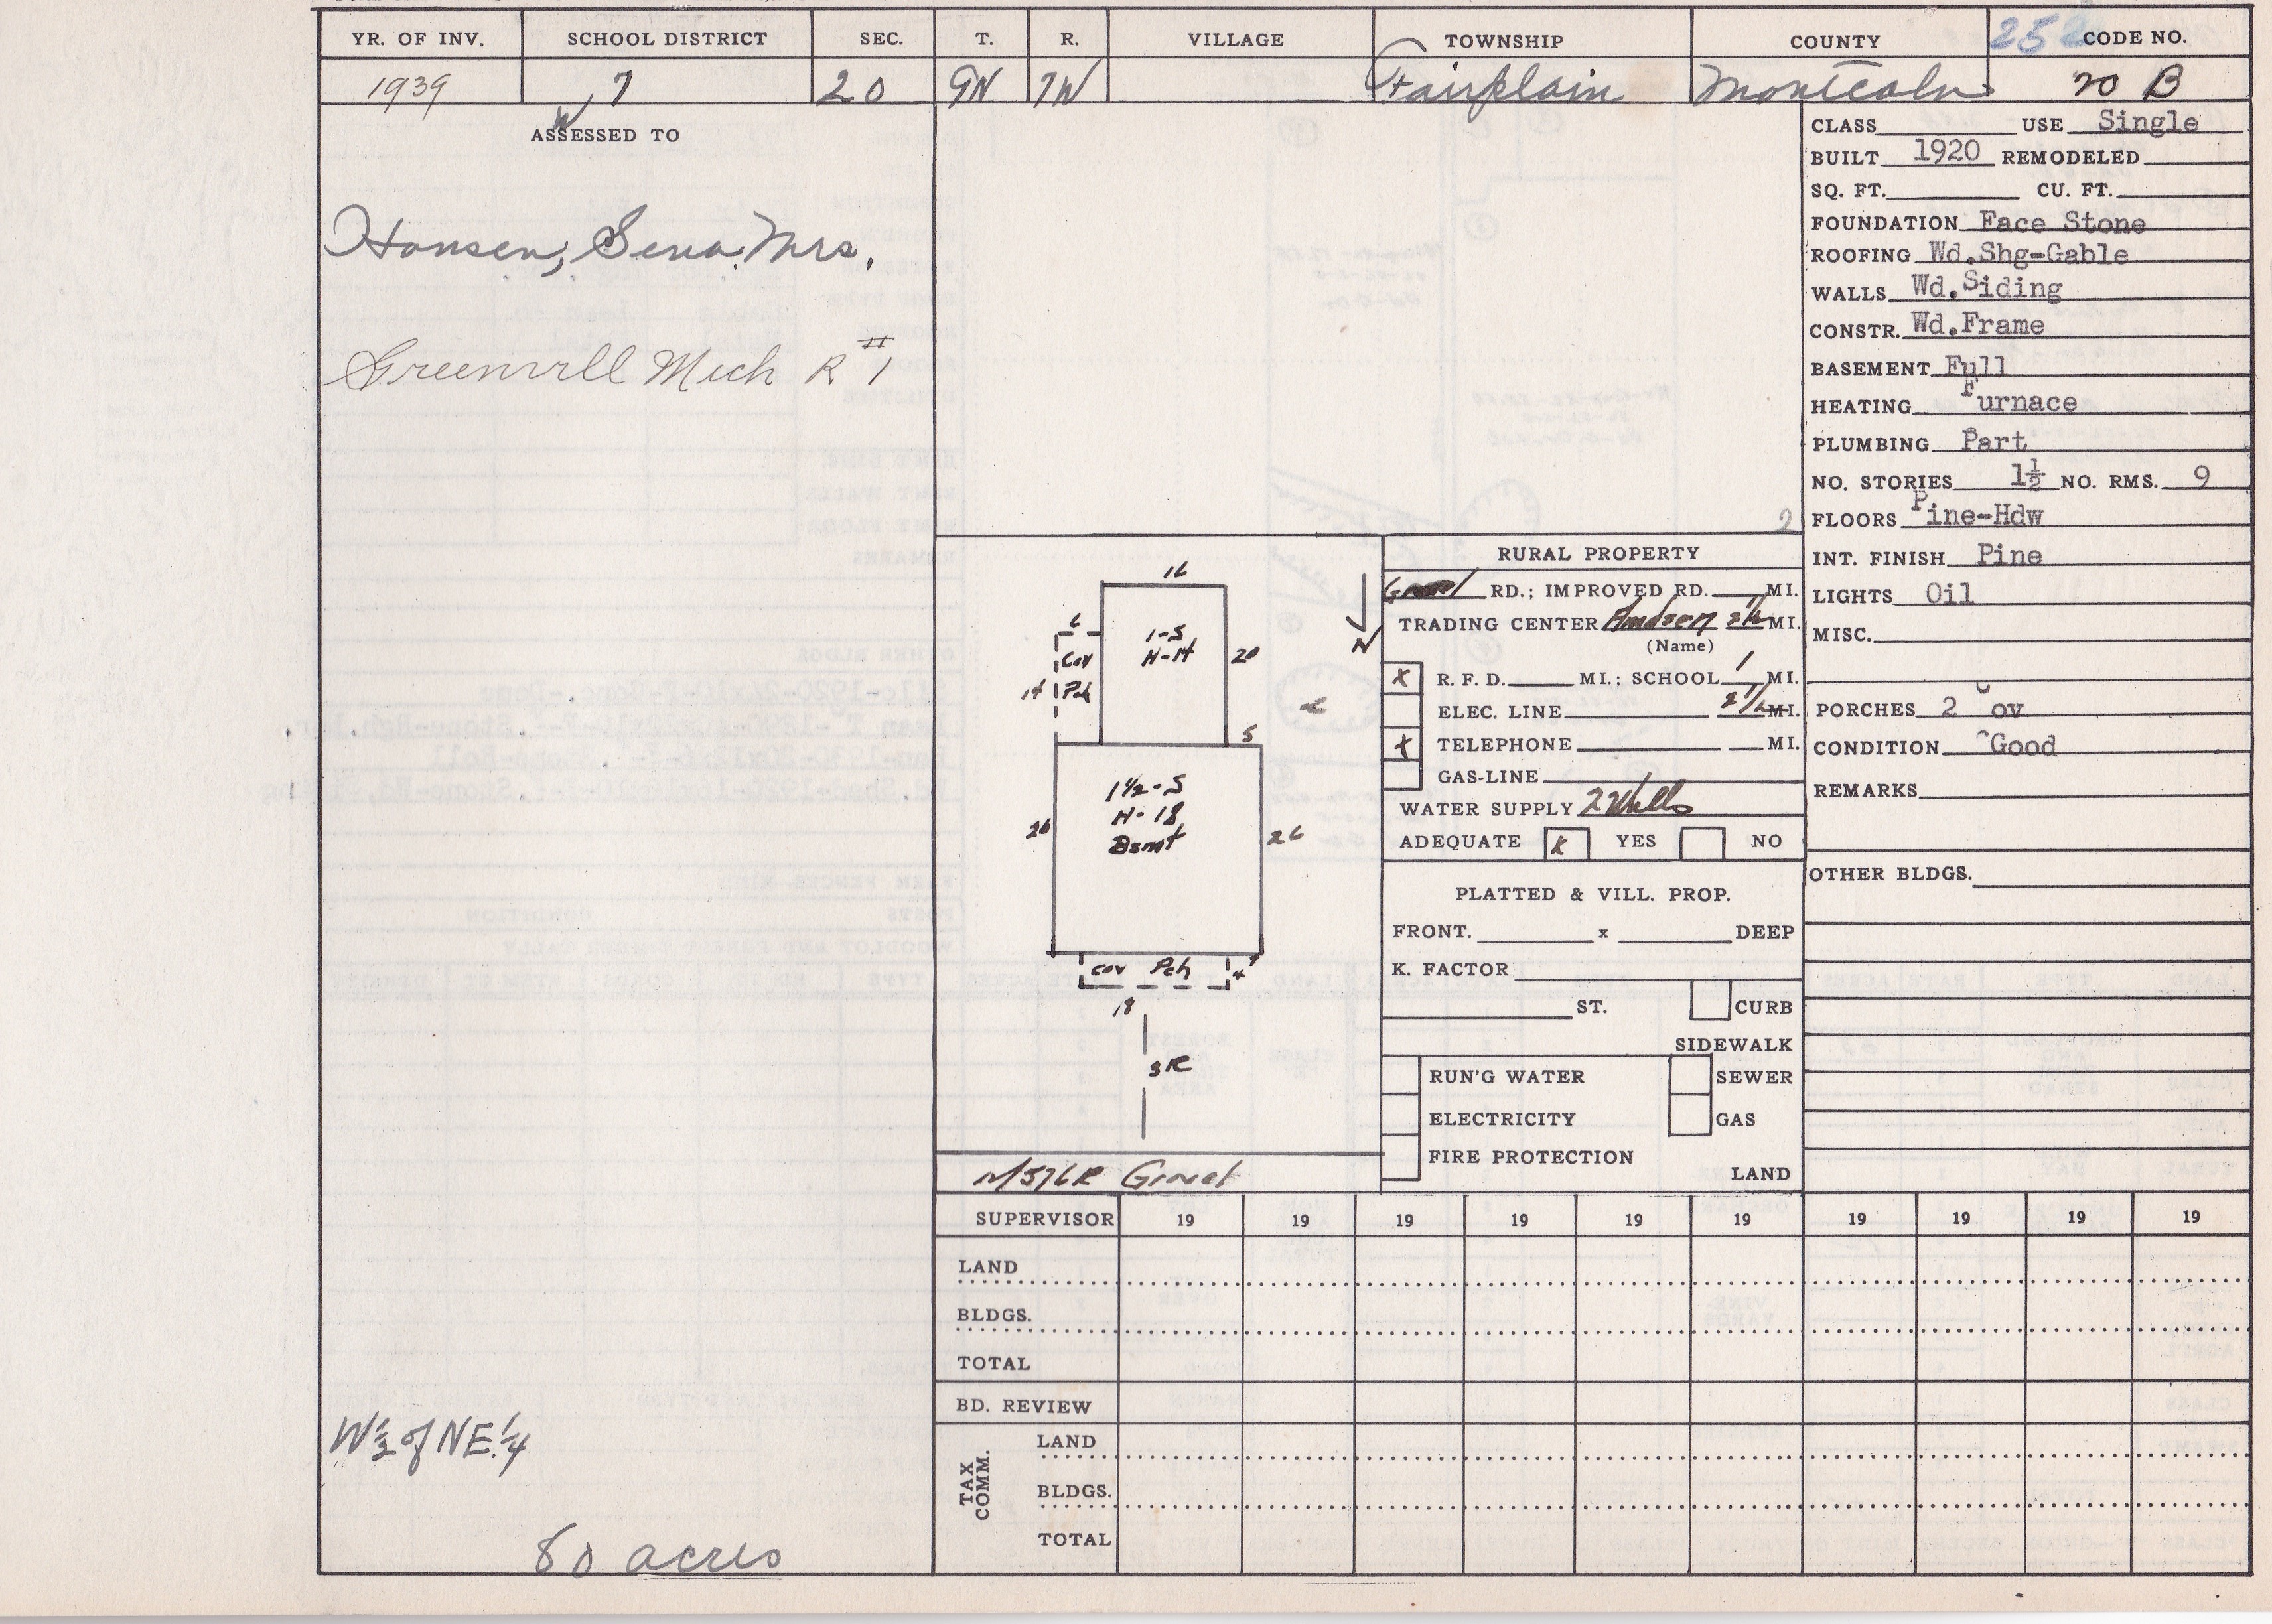 YR. OF INV. SCHOOL DISTRICT SEC. T. R. VILLAGE TOWNSHIP COUNTY 252 CODE NO.
1939 7 20 9N 7W Fairplain Montcalm 20 B
W
ASSESSED TO
Hansen, Sena Mrs.
Greenvill Mich R #1
W 1/2 of NE. 1/4
80 acres
2
16
6
1-S
H-14
20
Cov
Pch
14
5
1 1/2-S
H-18
Bsmt
26
26
Cov Pch
4
18
3R
Gravel
N
RURAL PROPERTY
Gravel RD.; IMPROVED RD. MI.
TRADING CENTER 2 1/2 MI.
(Name)
x R. F. D. MI.; SCHOOL 1 MI.
ELEC. LINE 2 1/2 MI.
x TELEPHONE MI.
GAS-LINE
WATER SUPPLY 2 Wells
ADEQUATE x YES NO
PLATTED & VILL. PROP.
FRONT. x DEEP
K. FACTOR
ST. CURB
SIDEWALK
RUN'G WATER SEWER
ELECTRICITY GAS
FIRE PROTECTION
LAND
CLASS USE Single
BUILT 1920 REMODELED
SQ. FT. CU. FT.
FOUNDATION Face Stone
ROOFING Wd.Shg-Gable
WALLS Wd.Siding
CONSTR. Wd.Frame
BASEMENT Full
HEATING Furnace
PLUMBING Part
NO. STORIES 1½ NO. RMS. 9
FLOORS Pine-Hdw
INT. FINISH Pine
LIGHTS Oil
MISC.
PORCHES 2 Cov
CONDITION Good
REMARKS
OTHER BLDGS.
SUPERVISOR 19 19 19 19 19 19 19 19 19 19
LAND
BLDGS.
TOTAL
BD. REVIEW
TAX COMM.
LAND
BLDGS.
TOTAL